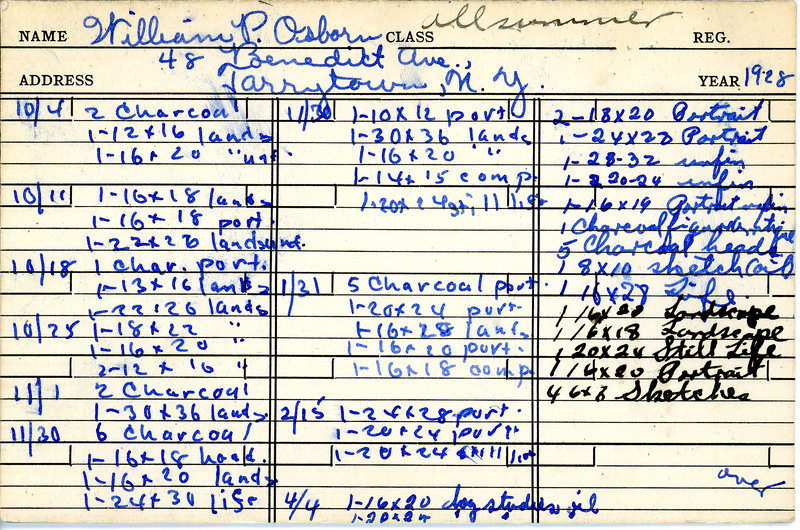 NAME William P. Osborn CLASS all summer REG.
48 Benedict Ave.,
ADDRESS Tarrytown, N.Y. YEAR 1928
10/4 2 Charcoal
1-12x16 lands
1-16x20 " unf.
10/11 1-16x18 lands
1-16x18 port.
1-22x26 lands unf.
10/18 1 Char. port.
1-13x16 lands
1-22x26 lands
10/25 1-18x22 "
1-16x20 "
2-12x16 "
11/1 2 Charcoal
1-30x36 lands
11/30 6 Charcoal
1-16x18 head
1-16x20 lands
1-24x30 life
11/30 1-10x12 port
1-30x36 lands
1-16x20 "
1-14x15 comp.
1-20x24 still life
1/31 5 Charcoal port.
1-20x24 port
1-16x28 lands
1-16x20 port.
1-16x18 comp
2/15 1-24x28 port.
1-20x24 port
1-20x24 still life
4/4 1-16x20 dog studies oil
1-20x24
2-18x20 Portrait
1-24x28 Portrait
1-28-32 unfin
1-20-24 unfin
1-16x19 Portrait unfin
1 Charcoal figure
5 Charcoal heads
1 8x10 sketch (oil)
1 16x28 Life
1 16x20 Landscape
1 16x18 Landscape
1 20x24 Still Life
1 16x20 Portrait
4 6x8 Sketches
over